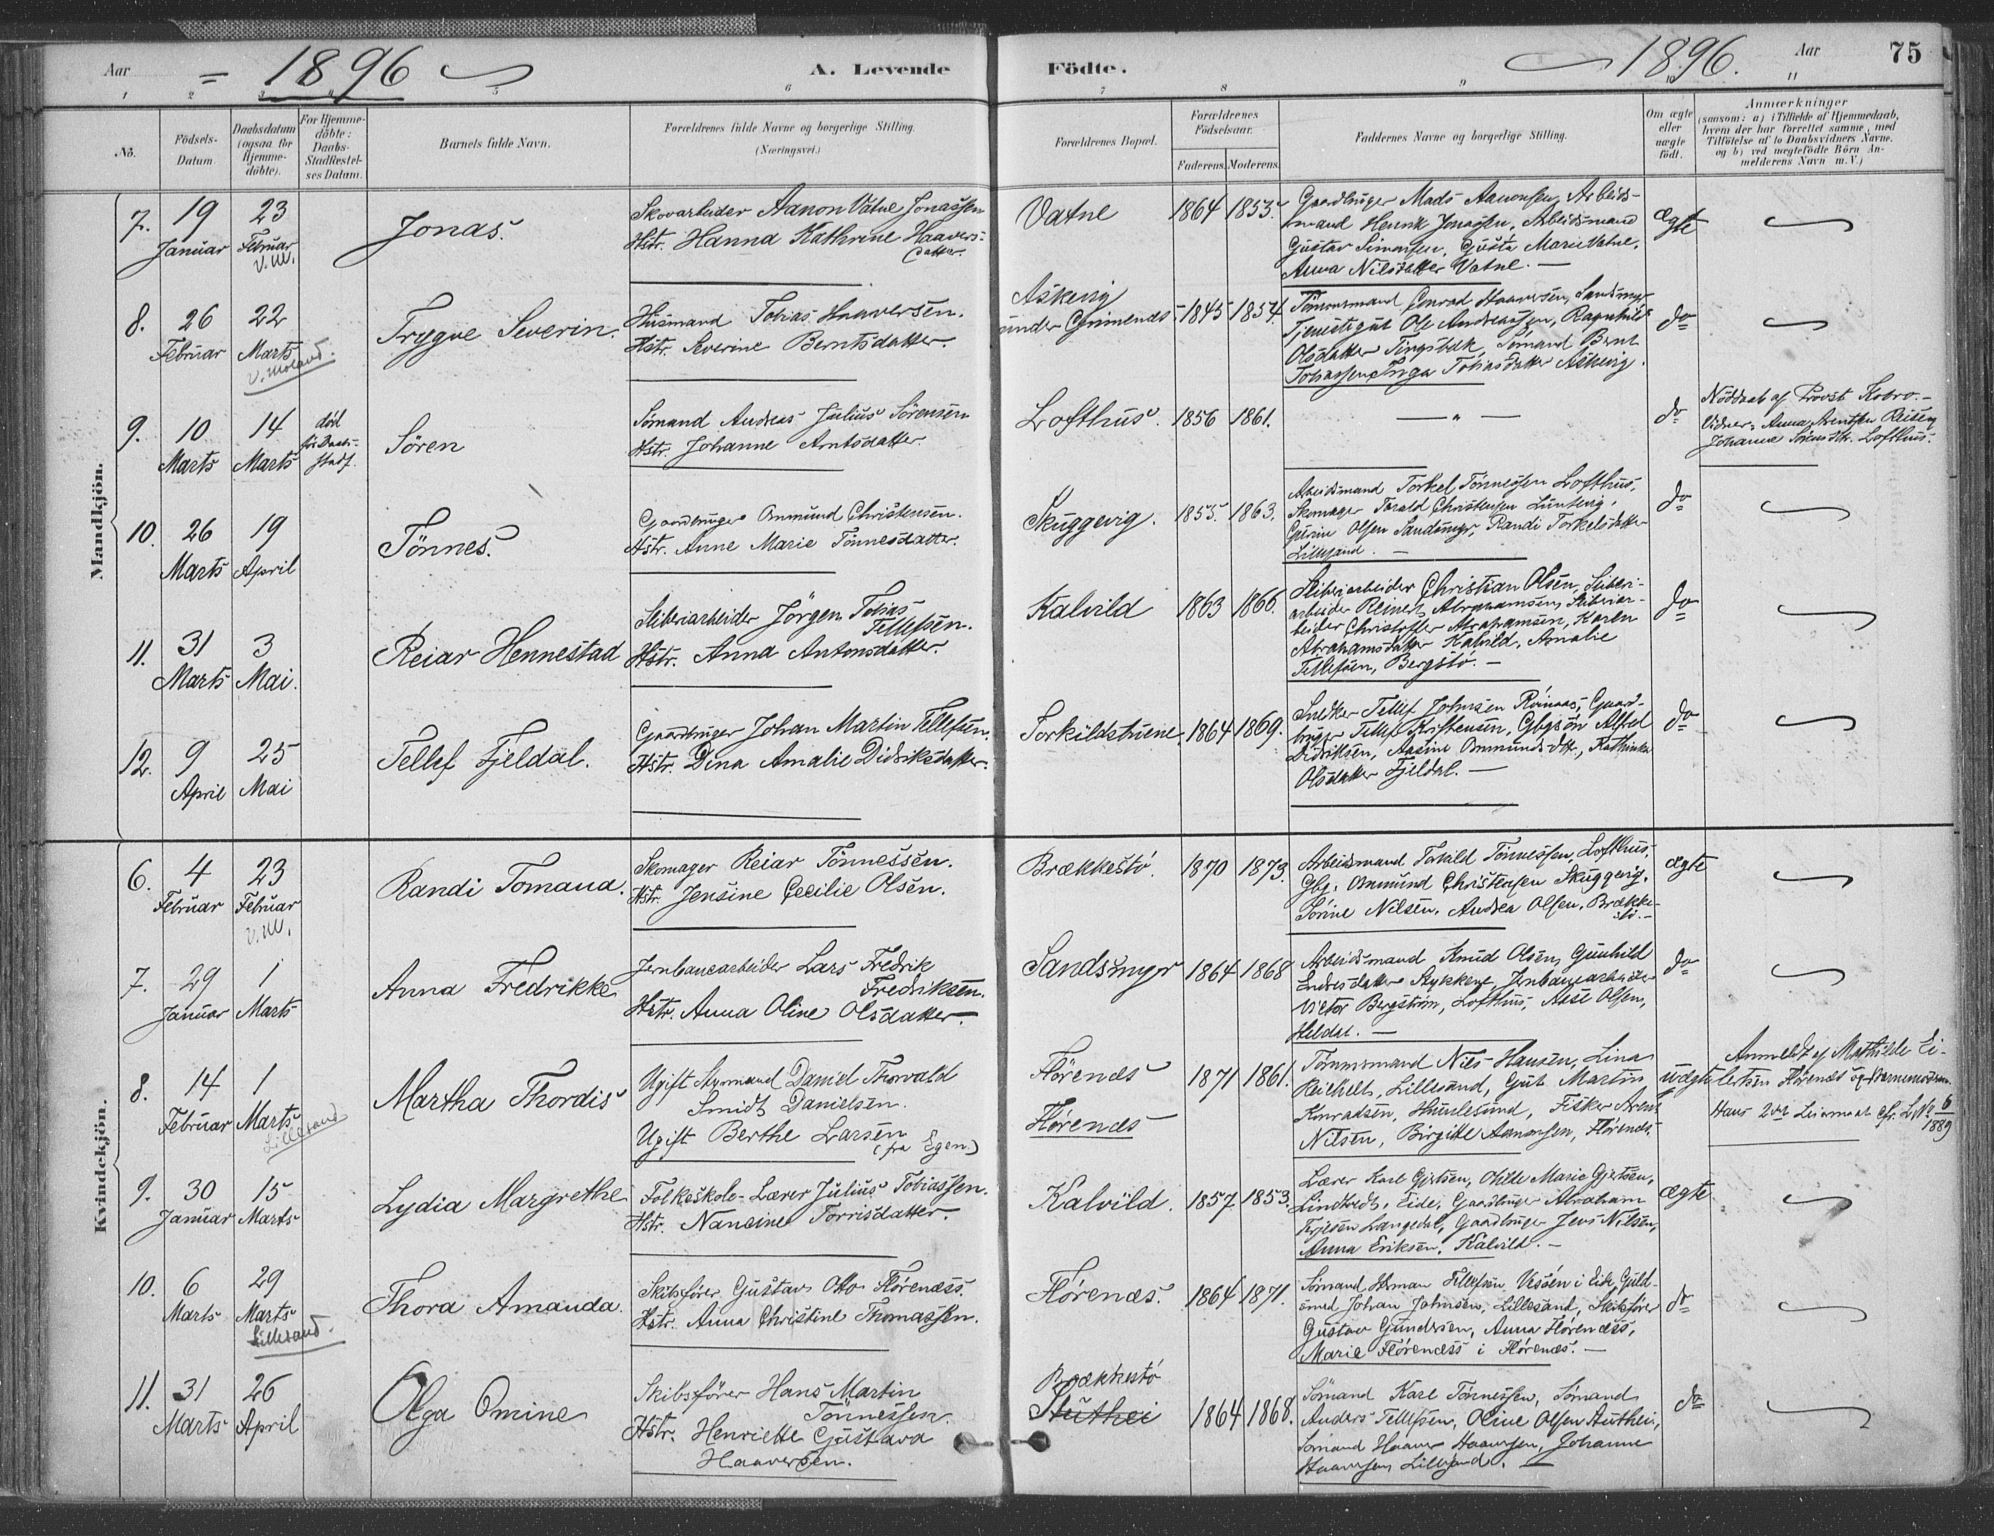 Aar = 1896 A. Levende Födte. 1896. Aar 75
1 2 3 4 5 6 7 8 9 10 11
No.
Födsels-Datum
Daabsdatum (ogsaa for Hjemme-döbte).
For Hjemme-döbte: Daabs-Stadfæstel-ses Datum.
Barnets fulde Navn.
Forældrenes fulde Navne og borgerlige Stilling. (Næringsvei.)
Forældrenes Bopæl.
Forældrenes Födselsaar.
Faderens. Moderens.
Faddernes Navne og borgerlige Stilling.
Om ægte eller uægte födt.
Anmærkninger
(saasom: a) i Tilfælde af Hjemmedaab,
hvem der har forrettet samme, med
Tilföielse af to Daabsvidners Navne.
og b) ved uægtefödte Börn An-
melderens Navn m. V.)
Mandkjön.
7. 19 Januar 23 Februar V.M.
Jonas.
Skovarbeider Aanon Vatne Jonassen
Hstr. Hanna Kathrine Haavers-
datter.
Vatne 1864 1853.
Gaardbruger Mads Aanonsen, Arbeids-
mand Henrik Jonassen, Arbeidsmand
Gustav Simonsen, Gusta Marie Vatne,
Anna Nilsdatter Vatne. —
ægte
8. 26 Februar 22 Marts V. Moland.
Trygve Severin.
Husmand Tobias Haaversen.
Hstr. Severine Berntsdatter.
Askevig
under Grimenes 1845 1854.
Tömmermand Conrad Haaversen, Sandsmyr
Tjenestegut Ole Andreassen, Ragnhild
Olsdatter Tingsbæk, Sömand Bernt
Tobiassen, Inga Tobiasdatter Askevig.
do
9. 10 Marts 14 Marts död för Daabs-stadf.
Sören
Sömand Andreas Julius Sörensen
Hstr. Johanne Arntsdatter.
Lofthus. 1856 1861.
— " —
do
Nöddaab af Provst Kobro. —
Vidner: Anna Arentsen
Johanne Lofthus.
10. 26 Marts 19 April
Tönnes.
Gaardbruger Ommund Christensen.
Hstr. Anne Marie Tönnesdatter.
Skuggevig. 1855. 1863.
Arbeidsmand Torkel Tönnessen Lofthus,
Skomager Torald Christensen
Olsen Sandsmyr, Randi Torkelsdatter
Lillesand. —
do
11. 31 Marts 3 Mai.
Reiar Hennestad
Sliberiarbeider Jörgen Tobias
Tellefsen.
Hstr. Anna Antonsdatter.
Kalvild 1863 1866.
Sliberiarbeider Christian Olsen, Sliberi-
arbeider Reinert Abrahamsen, Sliberiar-
beider Christoffer Abrahamsen, Karen
Abrahamsdatter Kalvild, Amalie
Tellefsen, Bergstö. —
do
12. 9 April 25 Mai
Tellef Fjeldal.
Gaardbruger Johan Martin Tellefsen.
Hstr. Dina Amalie Didriksdatter.
Torkildstuene. 1864 1869.
Snedker Tellef Johnsen Röinaas, Gaard-
bruger Tellef Kristensen, Gbgsön Alfred
Didriksen, Aasine Ommundsdtr., Kathinka
Olsdatter Fjeldal. —
do
Kvindekjön.
6. 4 Februar 23 Februar V.M.
Randi Tomana.
Skomager Reiar Tönnessen.
Hstr. Jensine Cecilie Olsen.
Brækkestö. 1870 1873.
Arbeidsmand Torkild Tönnessen, Lofthus,
Gbg. Ommund Christensen Skuggevig.
Sörine Nilsen, Andrea Olsen, Brække-
stö. —
ægte
7. 29 Januar 1 Marts
Anna Fredrikke
Jernbanearbeider Lars Fredrik
Fredriksen.
Hstr. Anna Oline Olsdatter.
Sandsmyr 1864 1868
Arbeidsmand Knud Olsen, Gunhild
Endresdatter Stykkene, Jernbanearbeider
Victor Bergström, Lofthus, Aese Olsen,
Heldal. —
do
8. 14 Februar 1 Marts Lillesand
Martha Thordis
Ugift Styrmand Daniel Thorvald
Smidt Danielsen.
Ugift Berthe Larsen
(fra Egen.)
Flörenæs
Flörenæs 1871 1861.
Tömmermand Nils Hansen, Lina
Reichelt, Lillesand, Gut Martin
Konradsen, Humlesund, Fisker Arent
Nilsen, Birgitte Aanonsen, Flörenæs.
uægte
Anmeldt af Mathilde Ei-
lertsen Flörenæs
Hans 2det Leiermaal cfr. L.No. 6/1889
9. 30 Januar 15 Marts
Lydia Margrethe
Folkeskole-Lærer Julius Tobiassen.
Hstr. Nancine Torrisdatter.
Kalvild. 1857 1853
Lærer Karl Gjertsen, Marie Gjertsen,
Eide, Gaardbruger Abraham
Terjesen Langedal, Gaardbruger Jens Nilsen,
Anna Eriksen, Kalvild. —
ægte
10. 6 Marts 29 Marts Lillesand.
Thora Amanda.
Skibsförer Gustav Otto Flörenæss.
Hstr. Anna Christine Thomassen.
Flörenæs. 1864 1871.
Sömand Herman Tellefsen Vessön i Eide, Guld-
smed Johan Johnsen, Lillesand, Skibsförer
Gustav Gundersen, Anna Flörenæss,
Marie Flörenæss i Flörenæs. —
do
11. 31 Marts 26 April
Olga Omine
Skibsförer Hans Martin
Tönnessen.
Hstr. Henriette Gustava
Haaversen.
Brækkestö
Stuthei 1864 1868.
Sömand Karl Tönnessen, Sömand
Anders Tellefsen, Oline Olsen Stuthei,
Sömand Haaver Haaversen, Johanne
Haaversen Lillesand. —
do